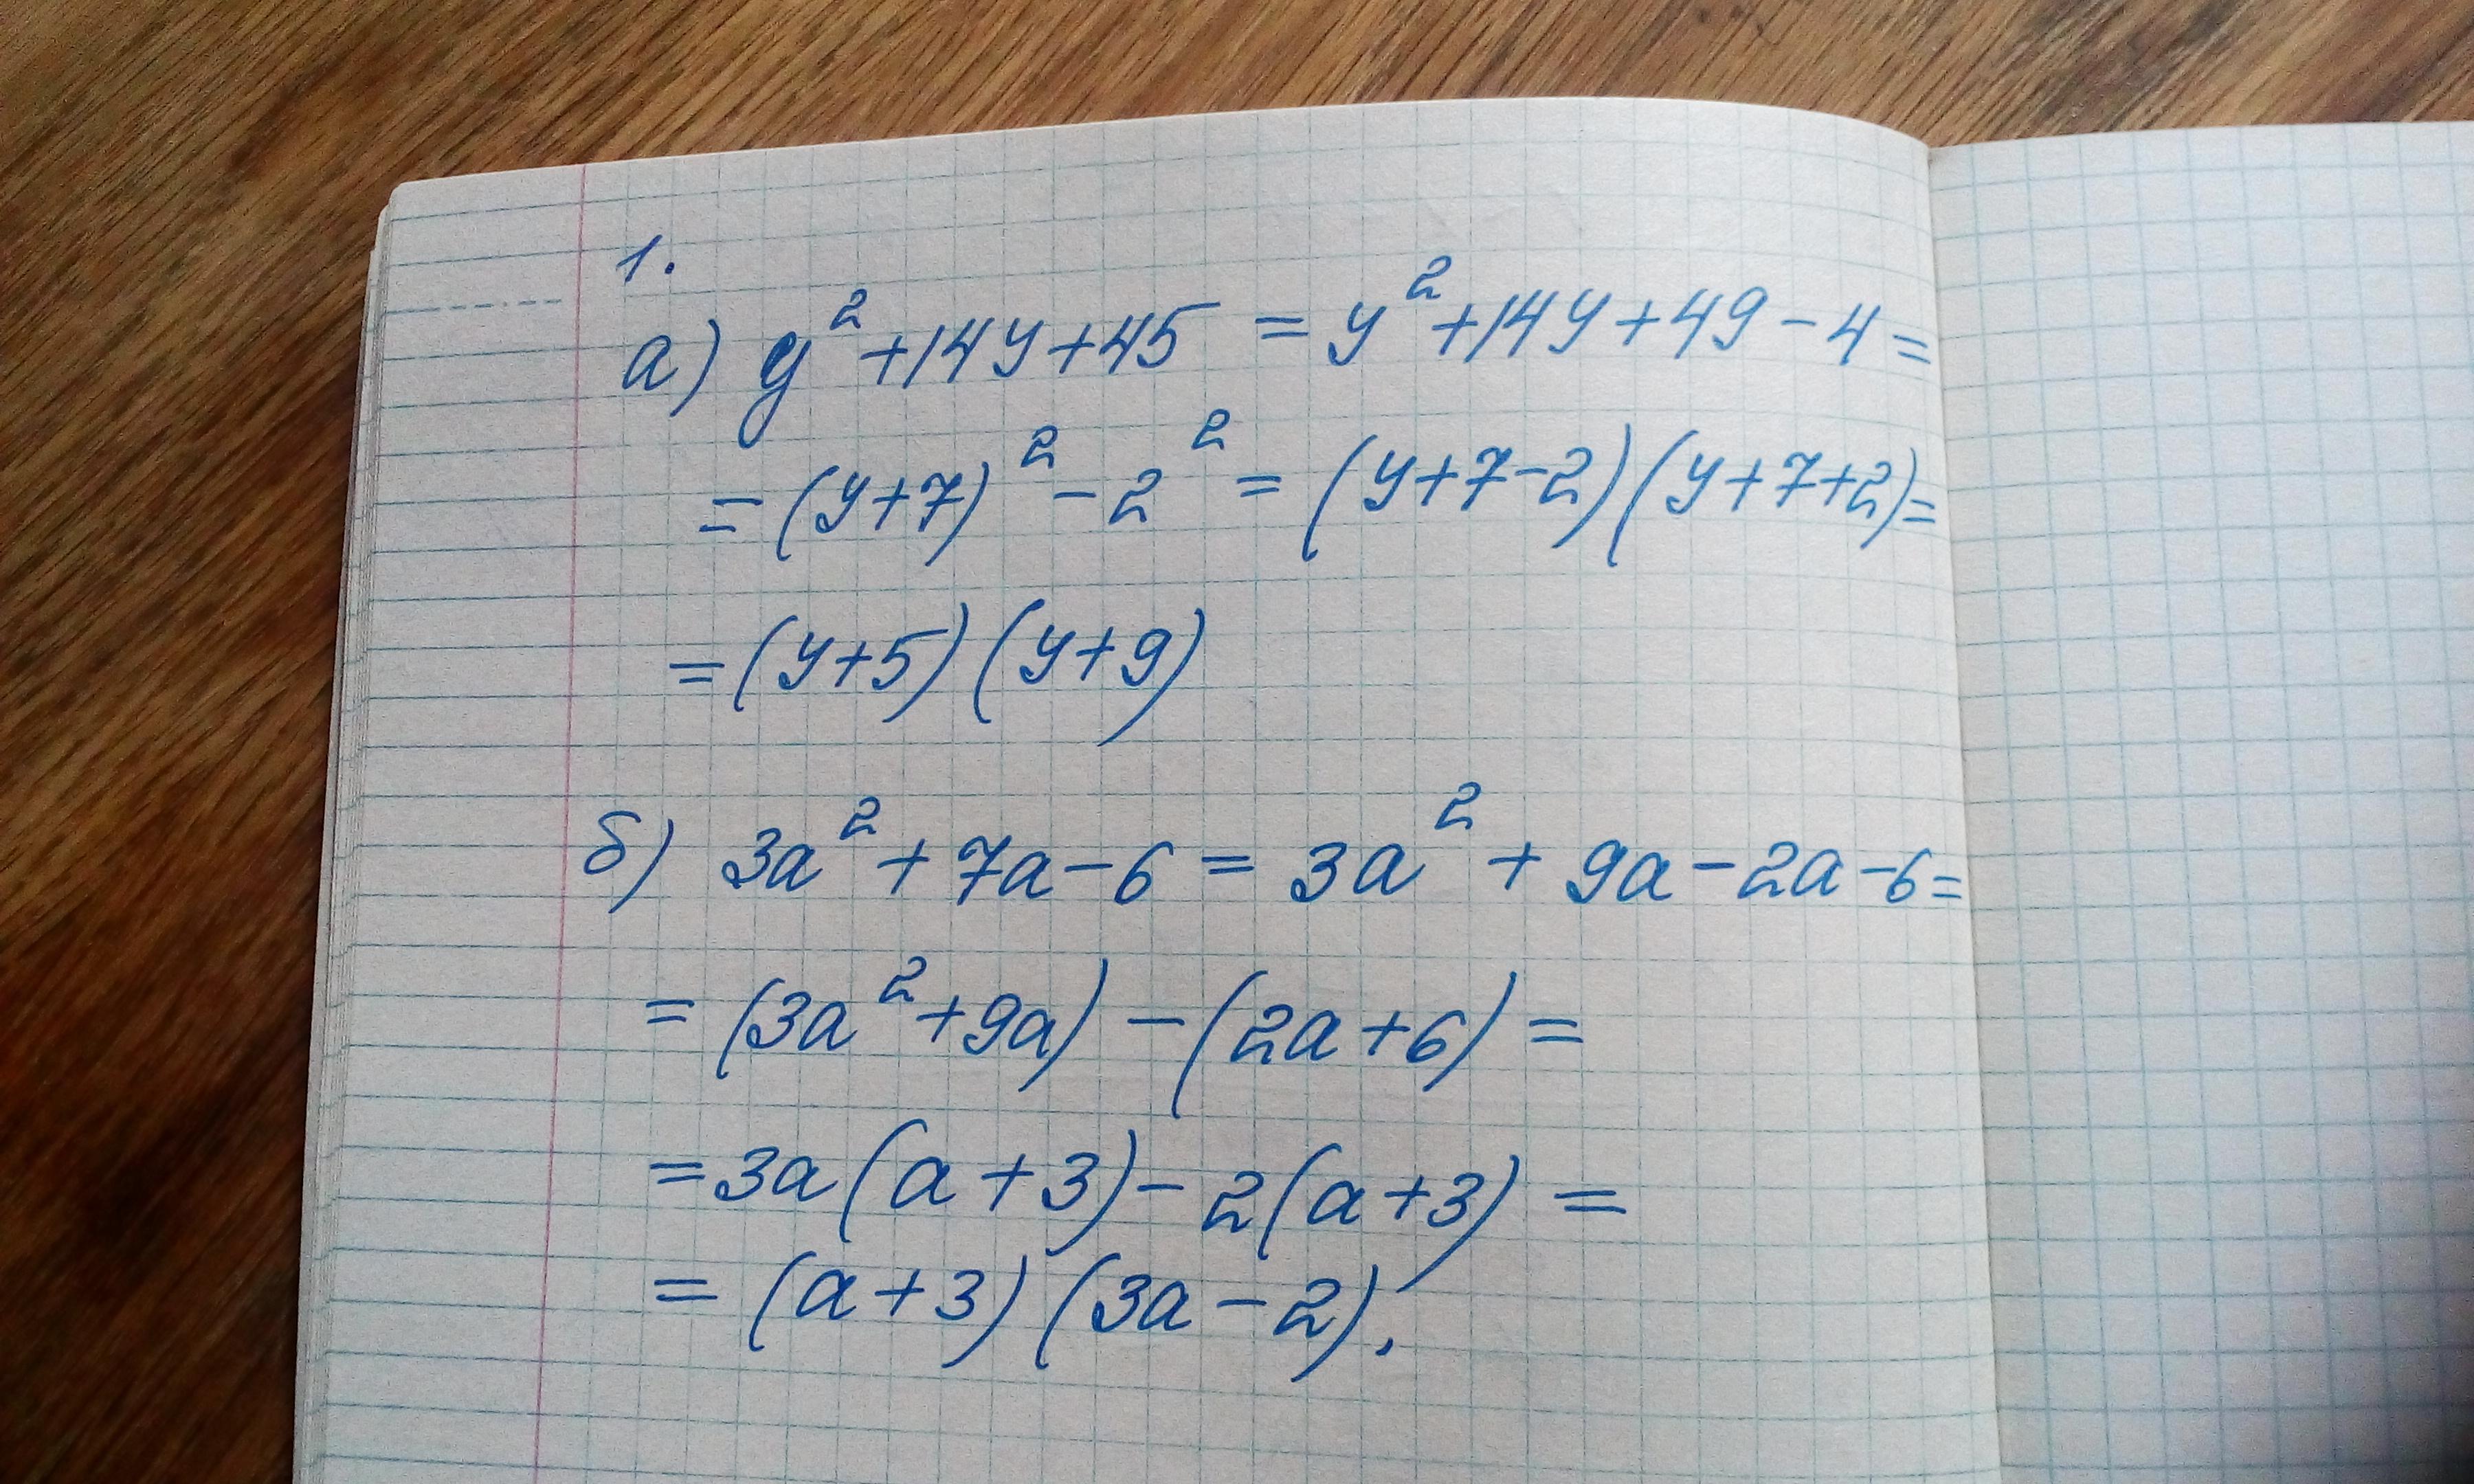 1.
а) y²+14y+45 = y²+14y+49-4=
=(y+7)²-2² = (y+7-2)(y+7+2)=
=(y+5)(y+9)
б) 3a²+7a-6 = 3a²+9a-2a-6=
= (3a²+9a)-(2a+6)=
=3a(a+3)-2(a+3)=
= (a+3)(3a-2).